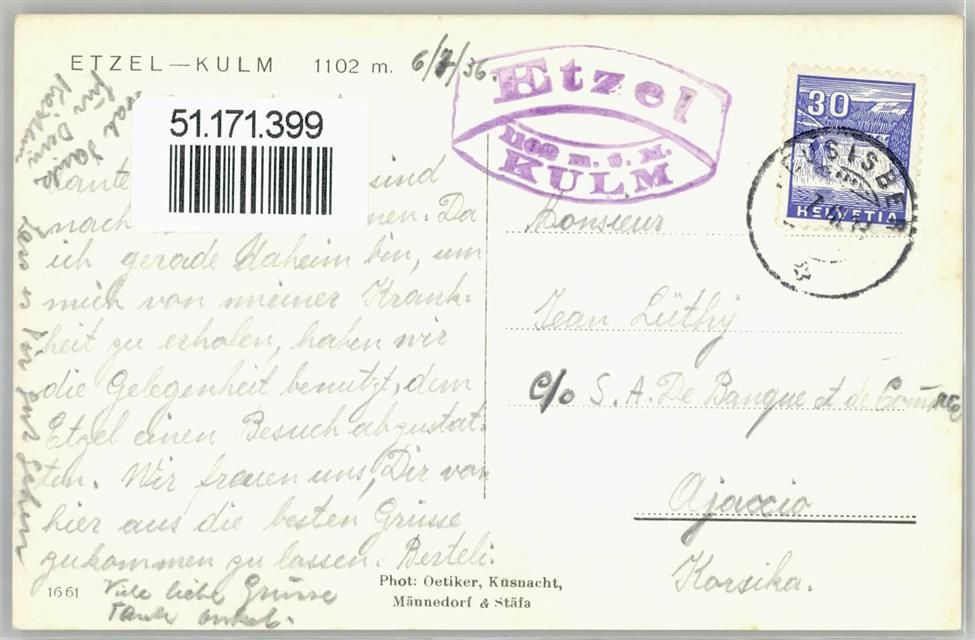 ETZEL—KULM 1102 m. 6/7/36.
Etzel
1102 m. ü. M.
KULM
30
HELVETIA
51.171.399
Tante
sind
nach
Da
ich gerade daheim bin, um
mich von meiner Krank=
heit zu erholen, haben wir
die Gelegenheit benutzt, dem
Etzel einen Besuch abzustat=
ten. Wir freuen uns, Dir von
hier aus die besten Grüsse
zukommen zu lassen. Berteli.
Viele liebe Grüsse
Monsieur
Jean Lüthy
c/o S. A. De Banque et de Commerce
Ajaccio
Korsika.
1661
Phot: Oetiker, Küsnacht,
Männedorf & Stäfa